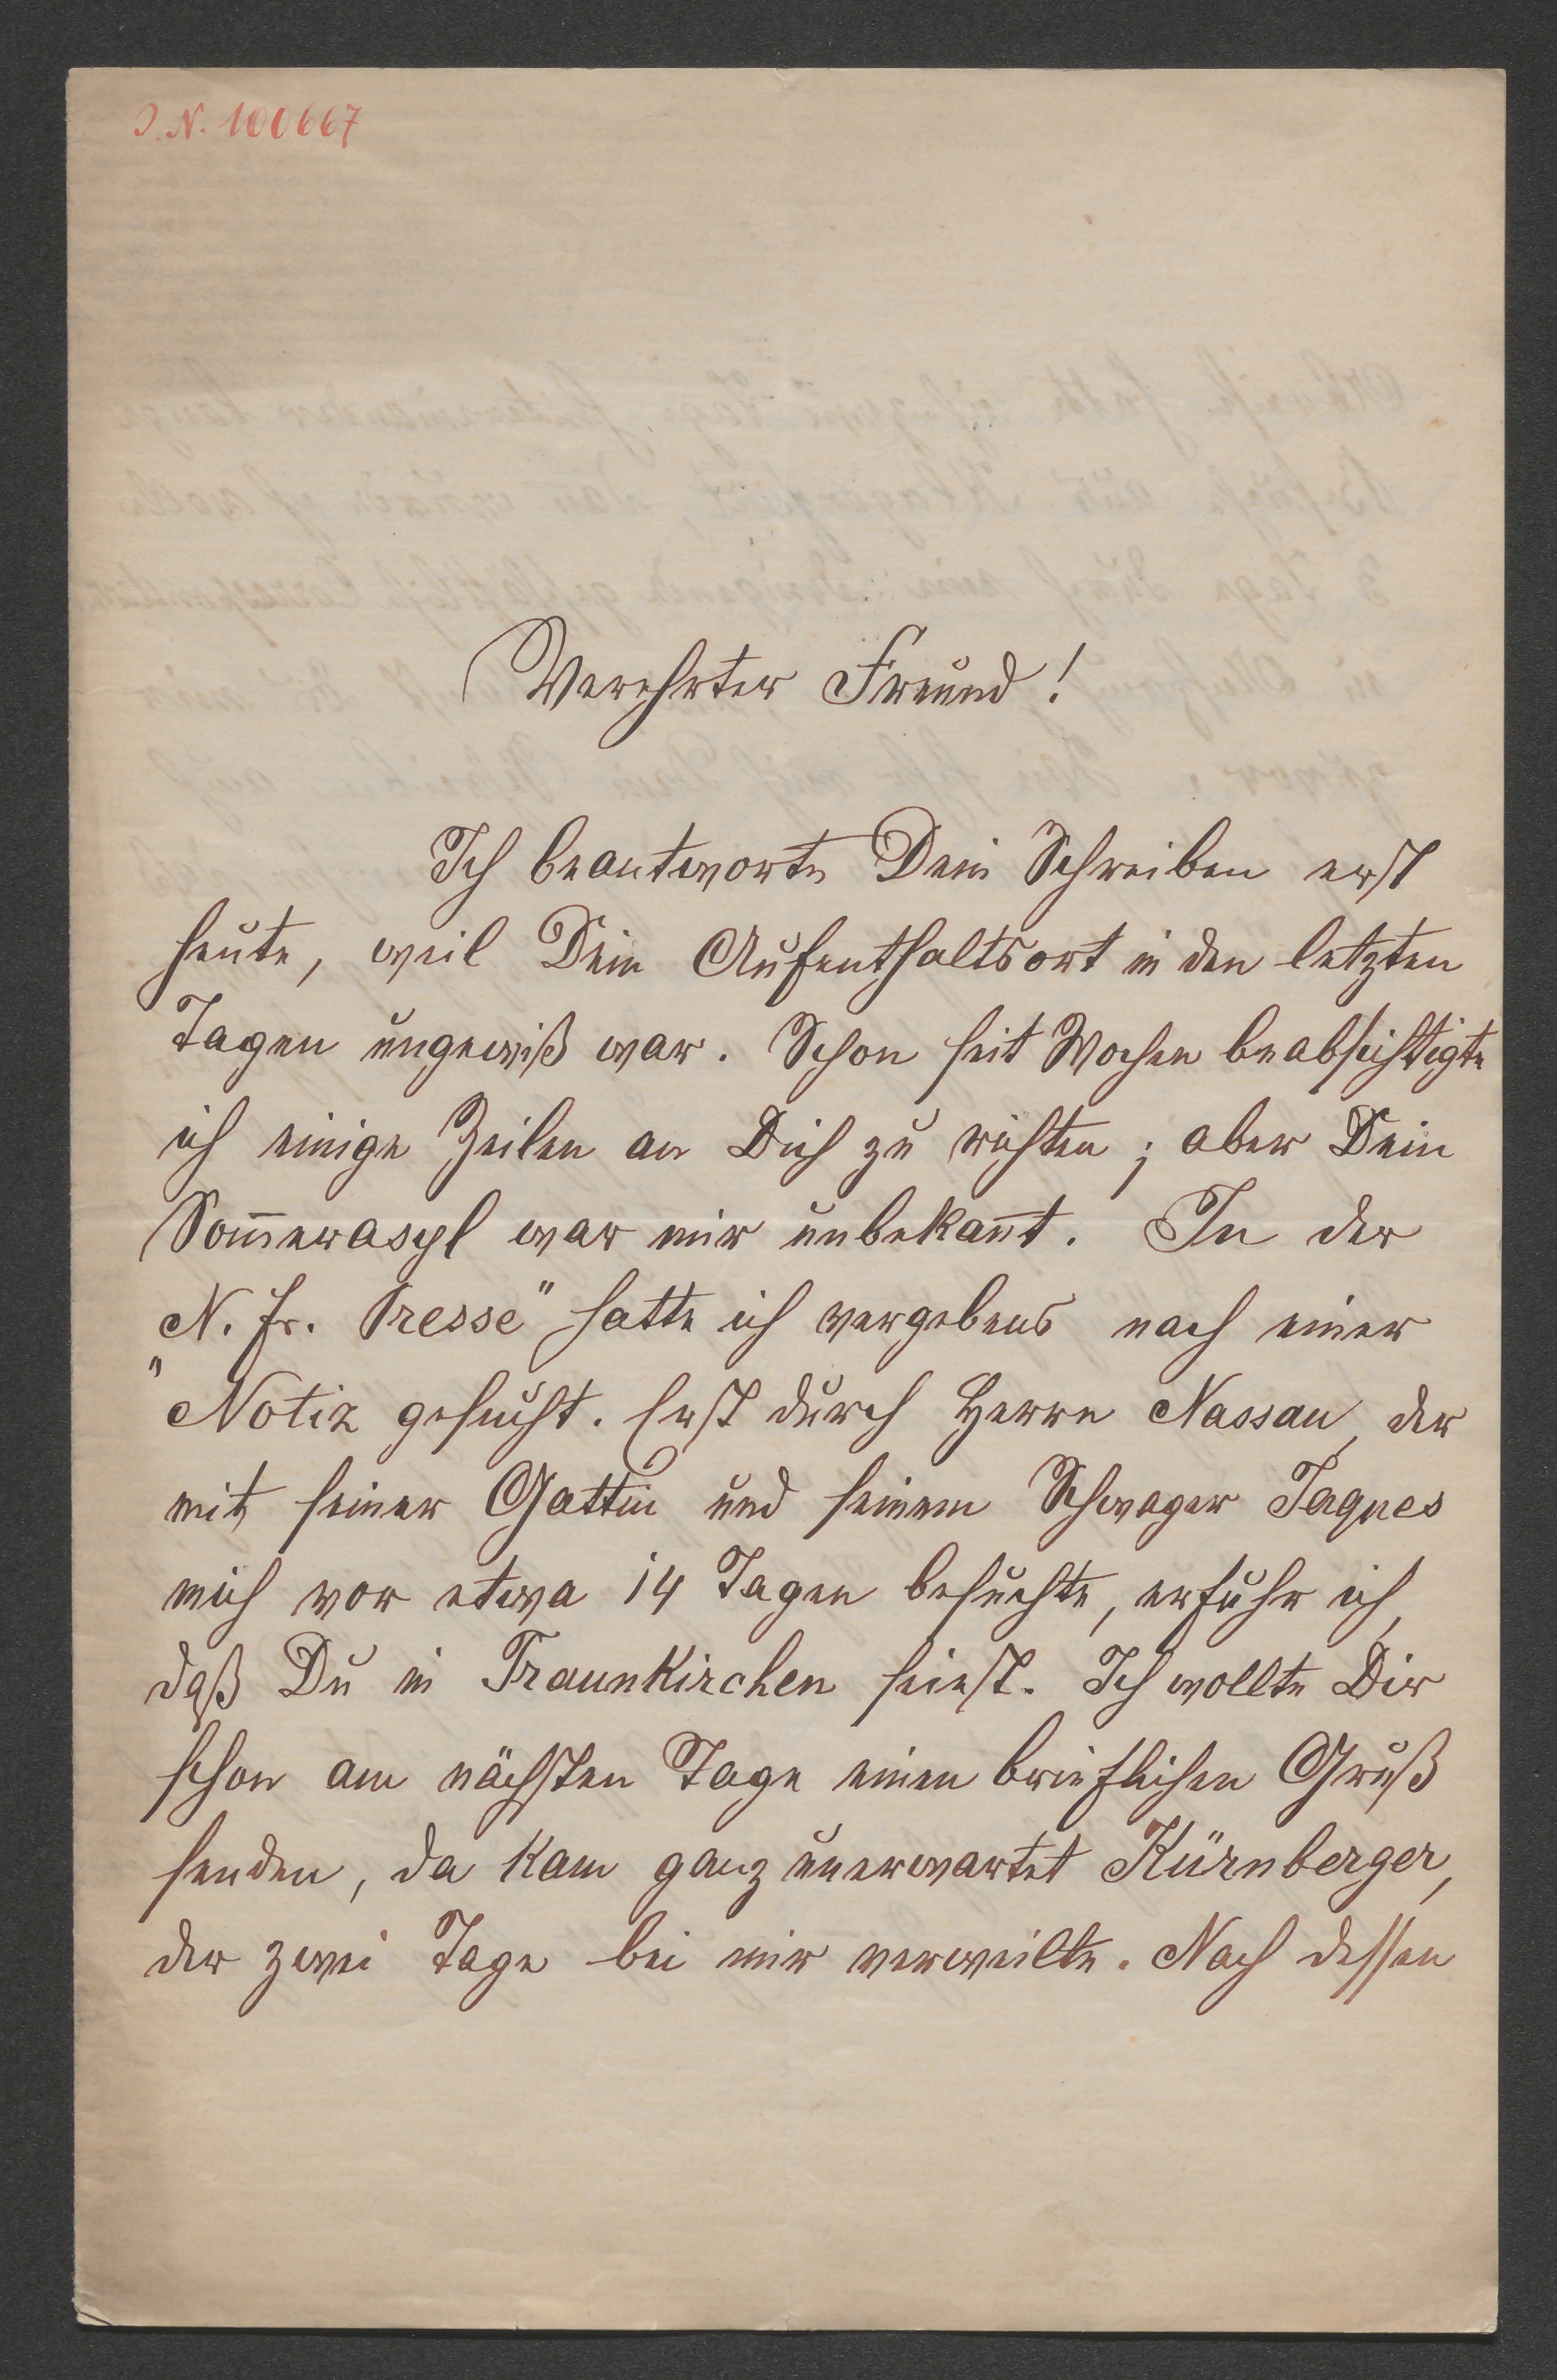 I. N. 100667
Verehrter Freund!
Ich beantworte Dein Schreiben erst
heute, weil Dein Aufenthaltsort in den letzten
Tagen ungewiß war. Schon seit Wochen beabsichtigte
ich einige Zeilen an Dich zu richten; aber Dein
Som̄erasyl war mir unbekan̄t. In der
„N. fr. Presse" hatte ich vergebens nach einer
Notiz gesucht. Erst durch Herrn Nassau, der
mit seiner Gattin und seinem Schwager Jaques
mich vor etwa 14 Tagen besuchte, erfuhr ich,
daß Du in Traunkirchen seiest. Ich wollte Dir
schon am nächsten Tage einen brieflichen Gruß
senden, da kam ganz unerwartet Kürnberger,
der zwei Tage bei mir verweilte. Nach dessen